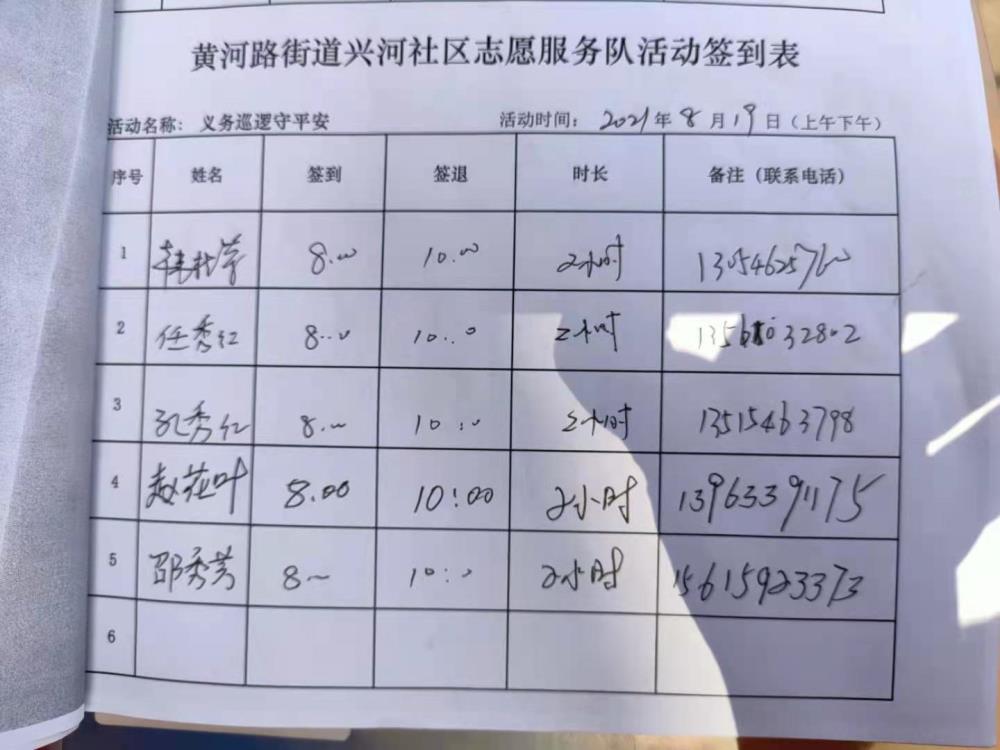 黄河路街道兴河社区志愿服务队活动签到表
活动名称：义务巡逻守平安 活动时间：2021年8月19日（上午下午）
序号 姓名 签到 签退 时长 备注（联系电话）
1 8.00 10.00 2小时 13054625760
2 任秀红 8:00 10:00 2小时
3 孔秀红 8:00 10:00 2小时 13515463798
4 赵花叶 8.00 10:00 2小时 13963391175
5 邵秀芳 8:00 10:00 2小时 15615923373
6